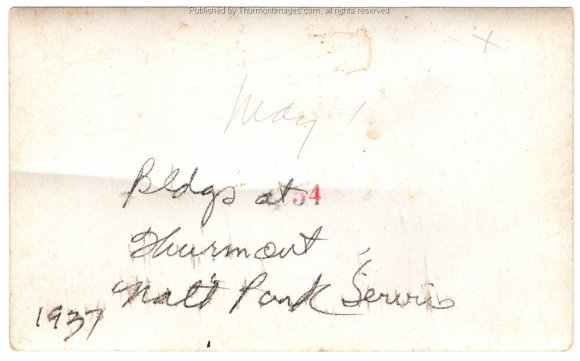 Published by Thurmontimages.com, all rights reserved
x
May 1
Bldgs at 54
Thurmont
Nat'l Park Servis
1937